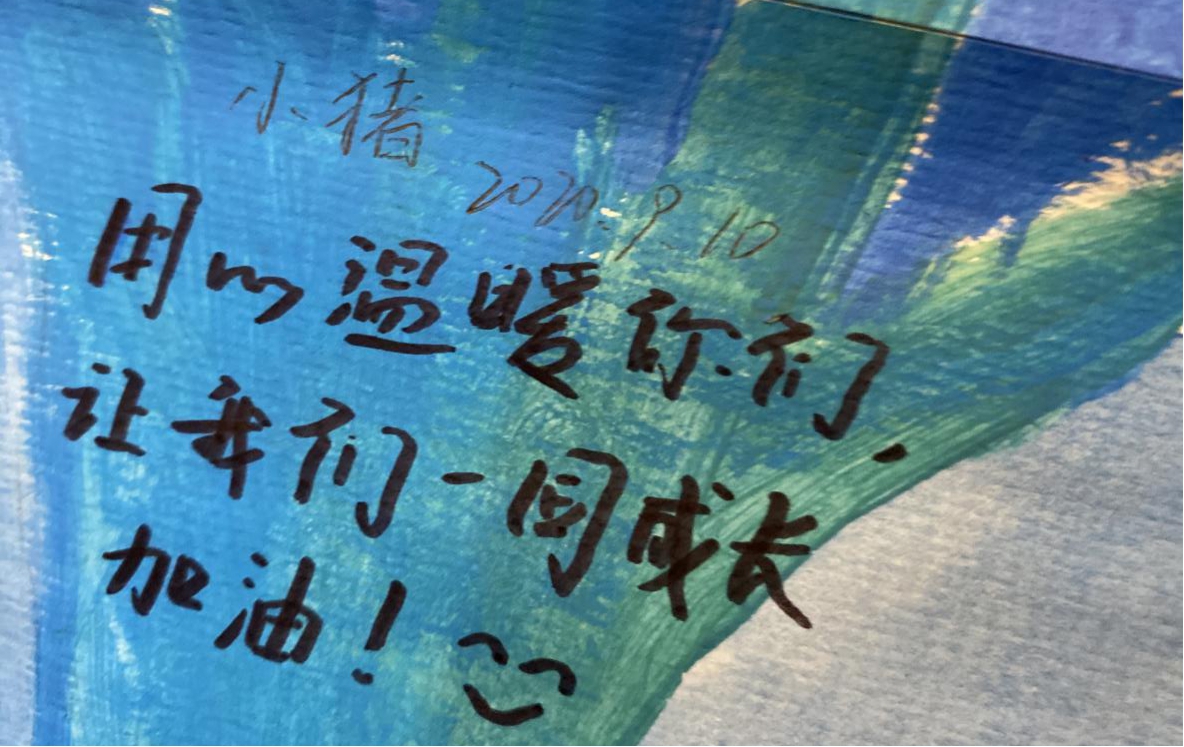 小猪
2020.9.10
用心温暖你们.
让我们一同成长
加油!